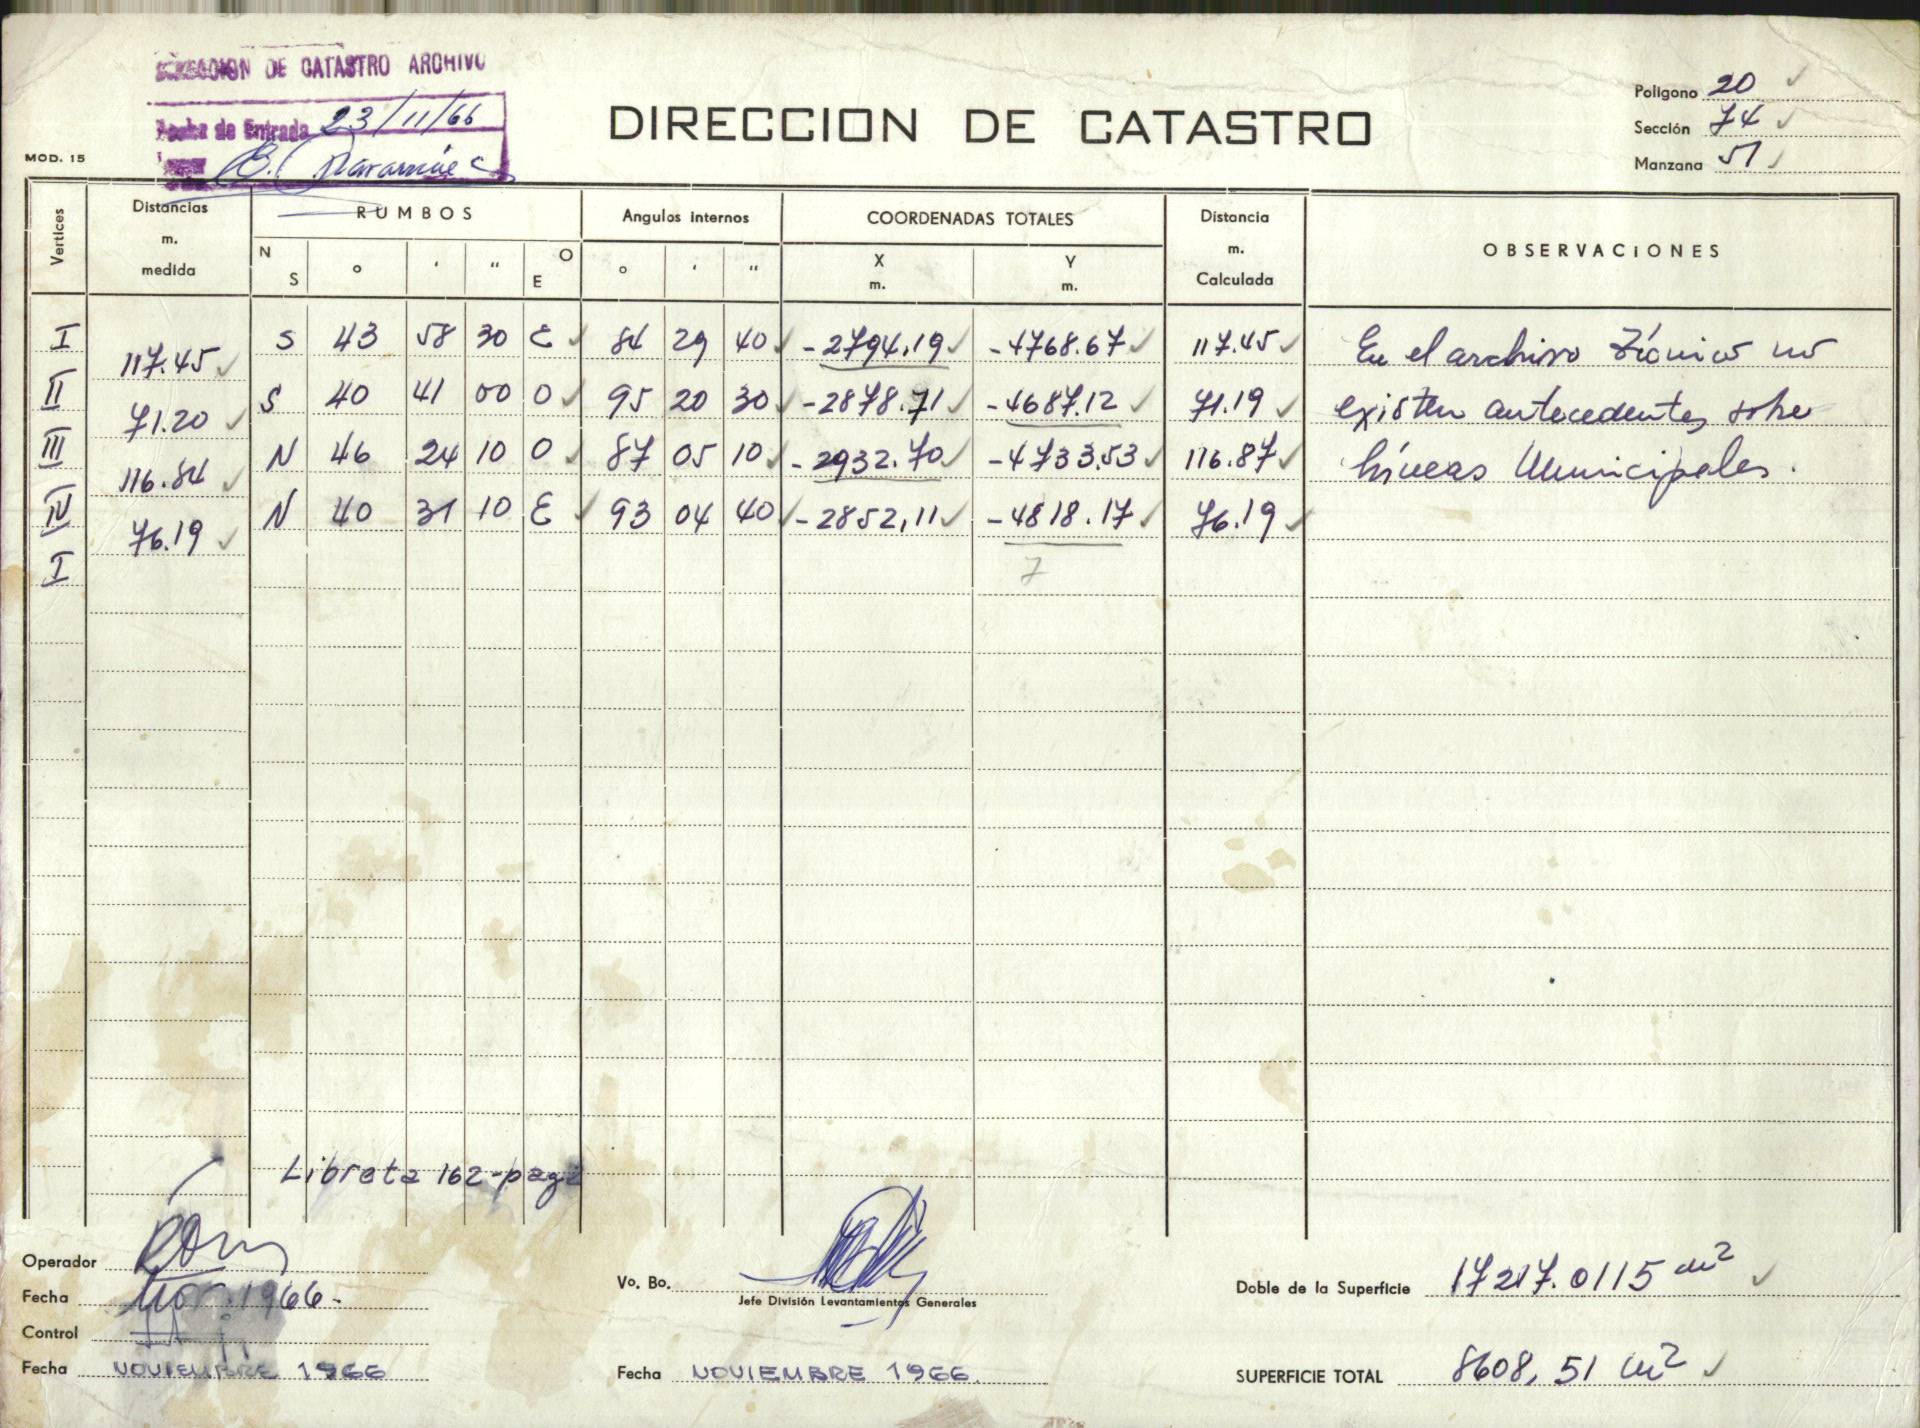 DIRECCION DE CATASTRO ARCHIVO
Fecha de Entrada 23/11/66
MOD. 15
DIRECCION DE CATASTRO
Poligono 20
Sección 74
Manzana 51
Vertices
Distancias m. medida
RUMBOS
N S ° ' " O E
Angulos internos
° ' "
COORDENADAS TOTALES
X m. Y m.
Distancia m. Calculada
OBSERVACIONES
I S 43 58 30 E 84 29 40 -2794.19 -4768.67 117.45 En el archivo Técnico no
117.45
II S 40 41 00 O 95 20 30 -2878.71 -4687.12 71.19 existen antecedentes sobre
71.20
III N 46 24 10 O 87 05 10 -2932.70 -4733.53 116.87 Líneas Municipales.
116.84
IV N 40 31 10 E 93 04 40 -2852,11 -4818.17 76.19
76.19
I
7
Libreta 162-pag 2
Operador
Fecha Nov. 1966-
Control
Fecha NOVIEMBRE 1966
Vo. Bo.
Jefe División Levantamientos Generales
Fecha NOVIEMBRE 1966.
Doble de la Superficie 17217.0115 m²
SUPERFICIE TOTAL 8608,51 m²